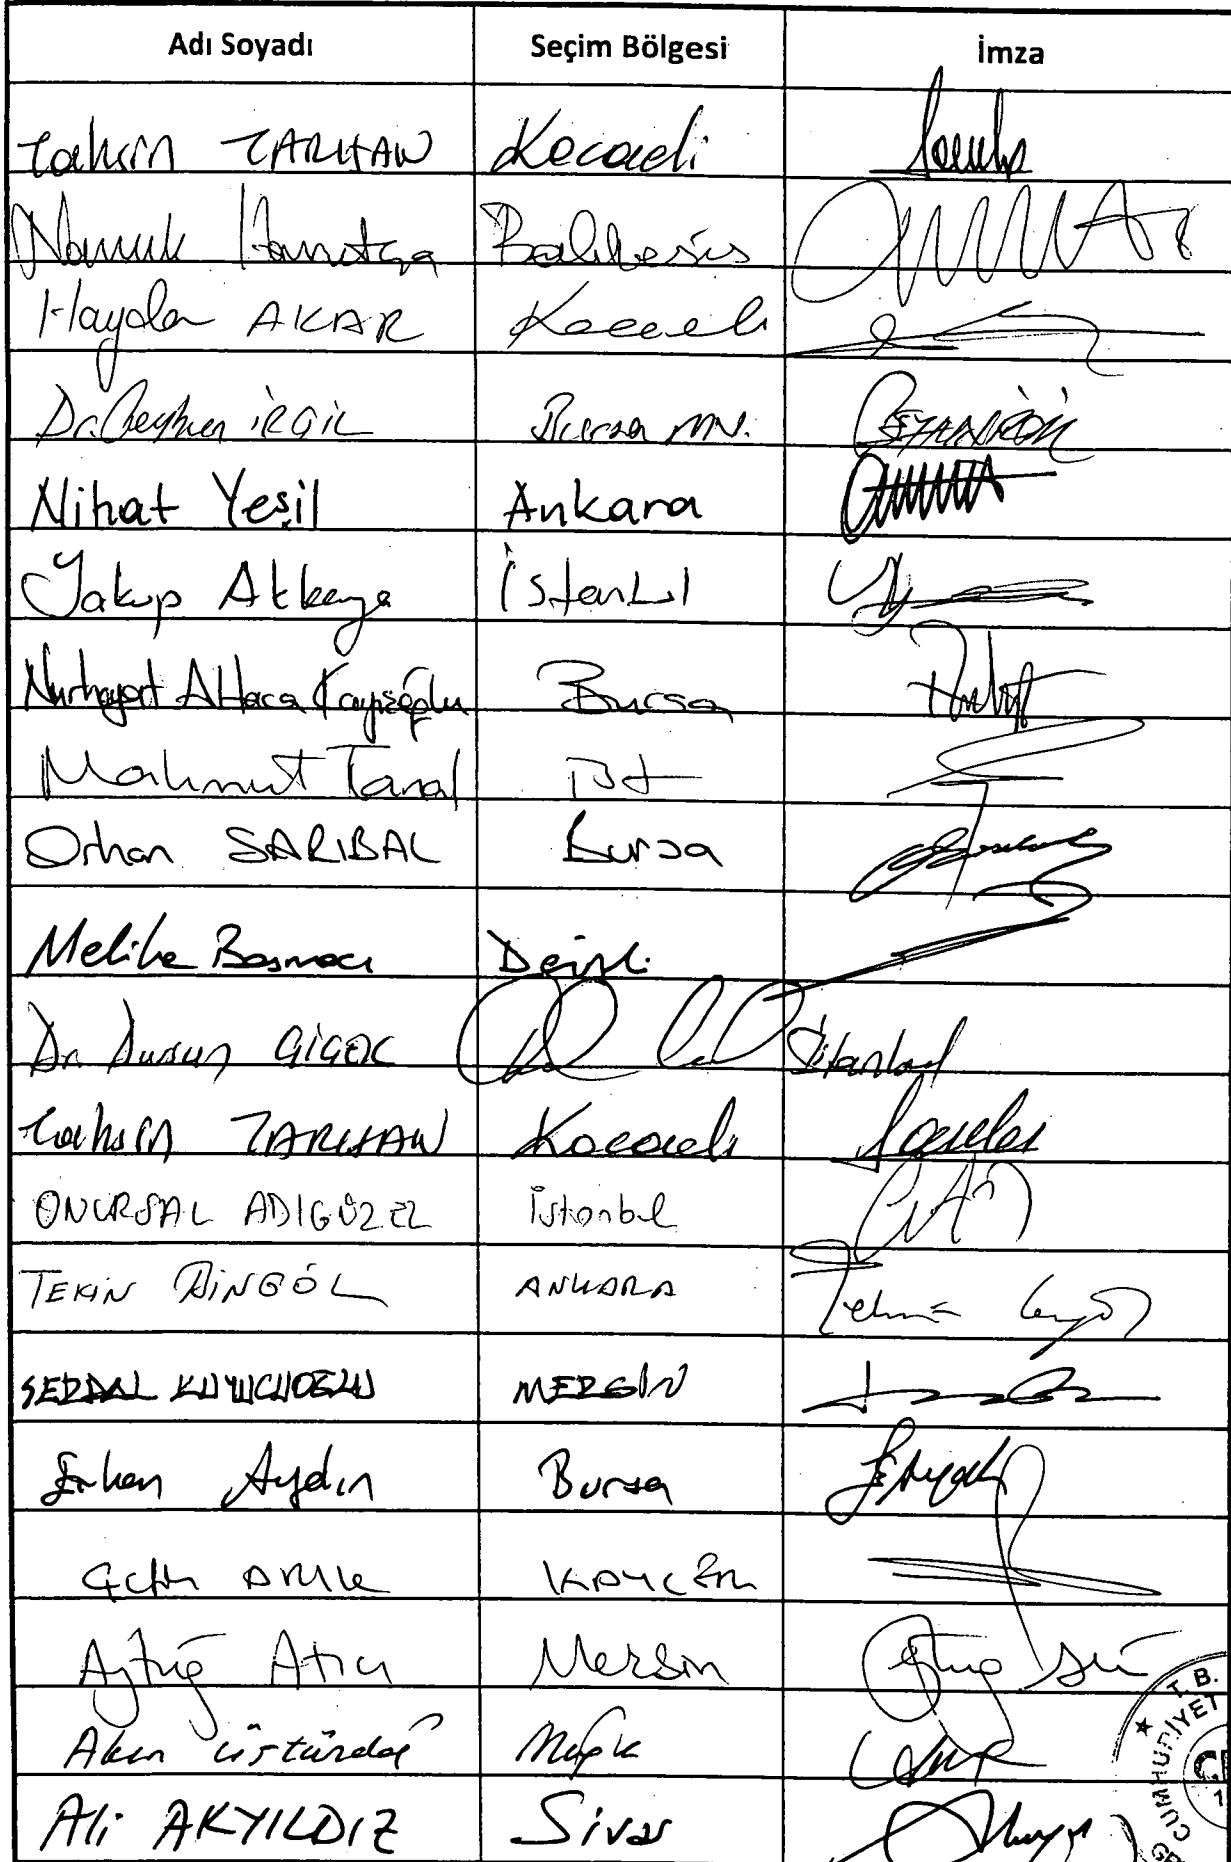 Adı Soyadı Seçim Bölgesi İmza
Tahsin TARHAN Kocaeli
Namık Havutça Balıkesir
Haydar AKAR Kocaeli
Dr. Ceyhun İRGİL Bursa MV. CEYHUN İRGİL
Nihat Yeşil Ankara
Yakup Akkaya İstanbul
Nurhayat Altaca Kayışoğlu Bursa
Mahmut Tanal İst
Orhan SARIBAL Bursa
Melike Basmacı Denizli
Dr. Dursun ÇİÇEK İstanbul
Tahsin TARHAN Kocaeli
ONURSAL ADIGÜZEL İstanbul
TEKİN BİNGÖL ANKARA
SERDAL KUYUCUOĞLU MERSİN
Erkan Aydın Bursa
Çetin ARIK KAYSERİ
Aytuğ Atıcı Mersin
Akın Üstündağ Muğla
Ali AKYILDIZ Sivas
T. B.
CUMHURİYET